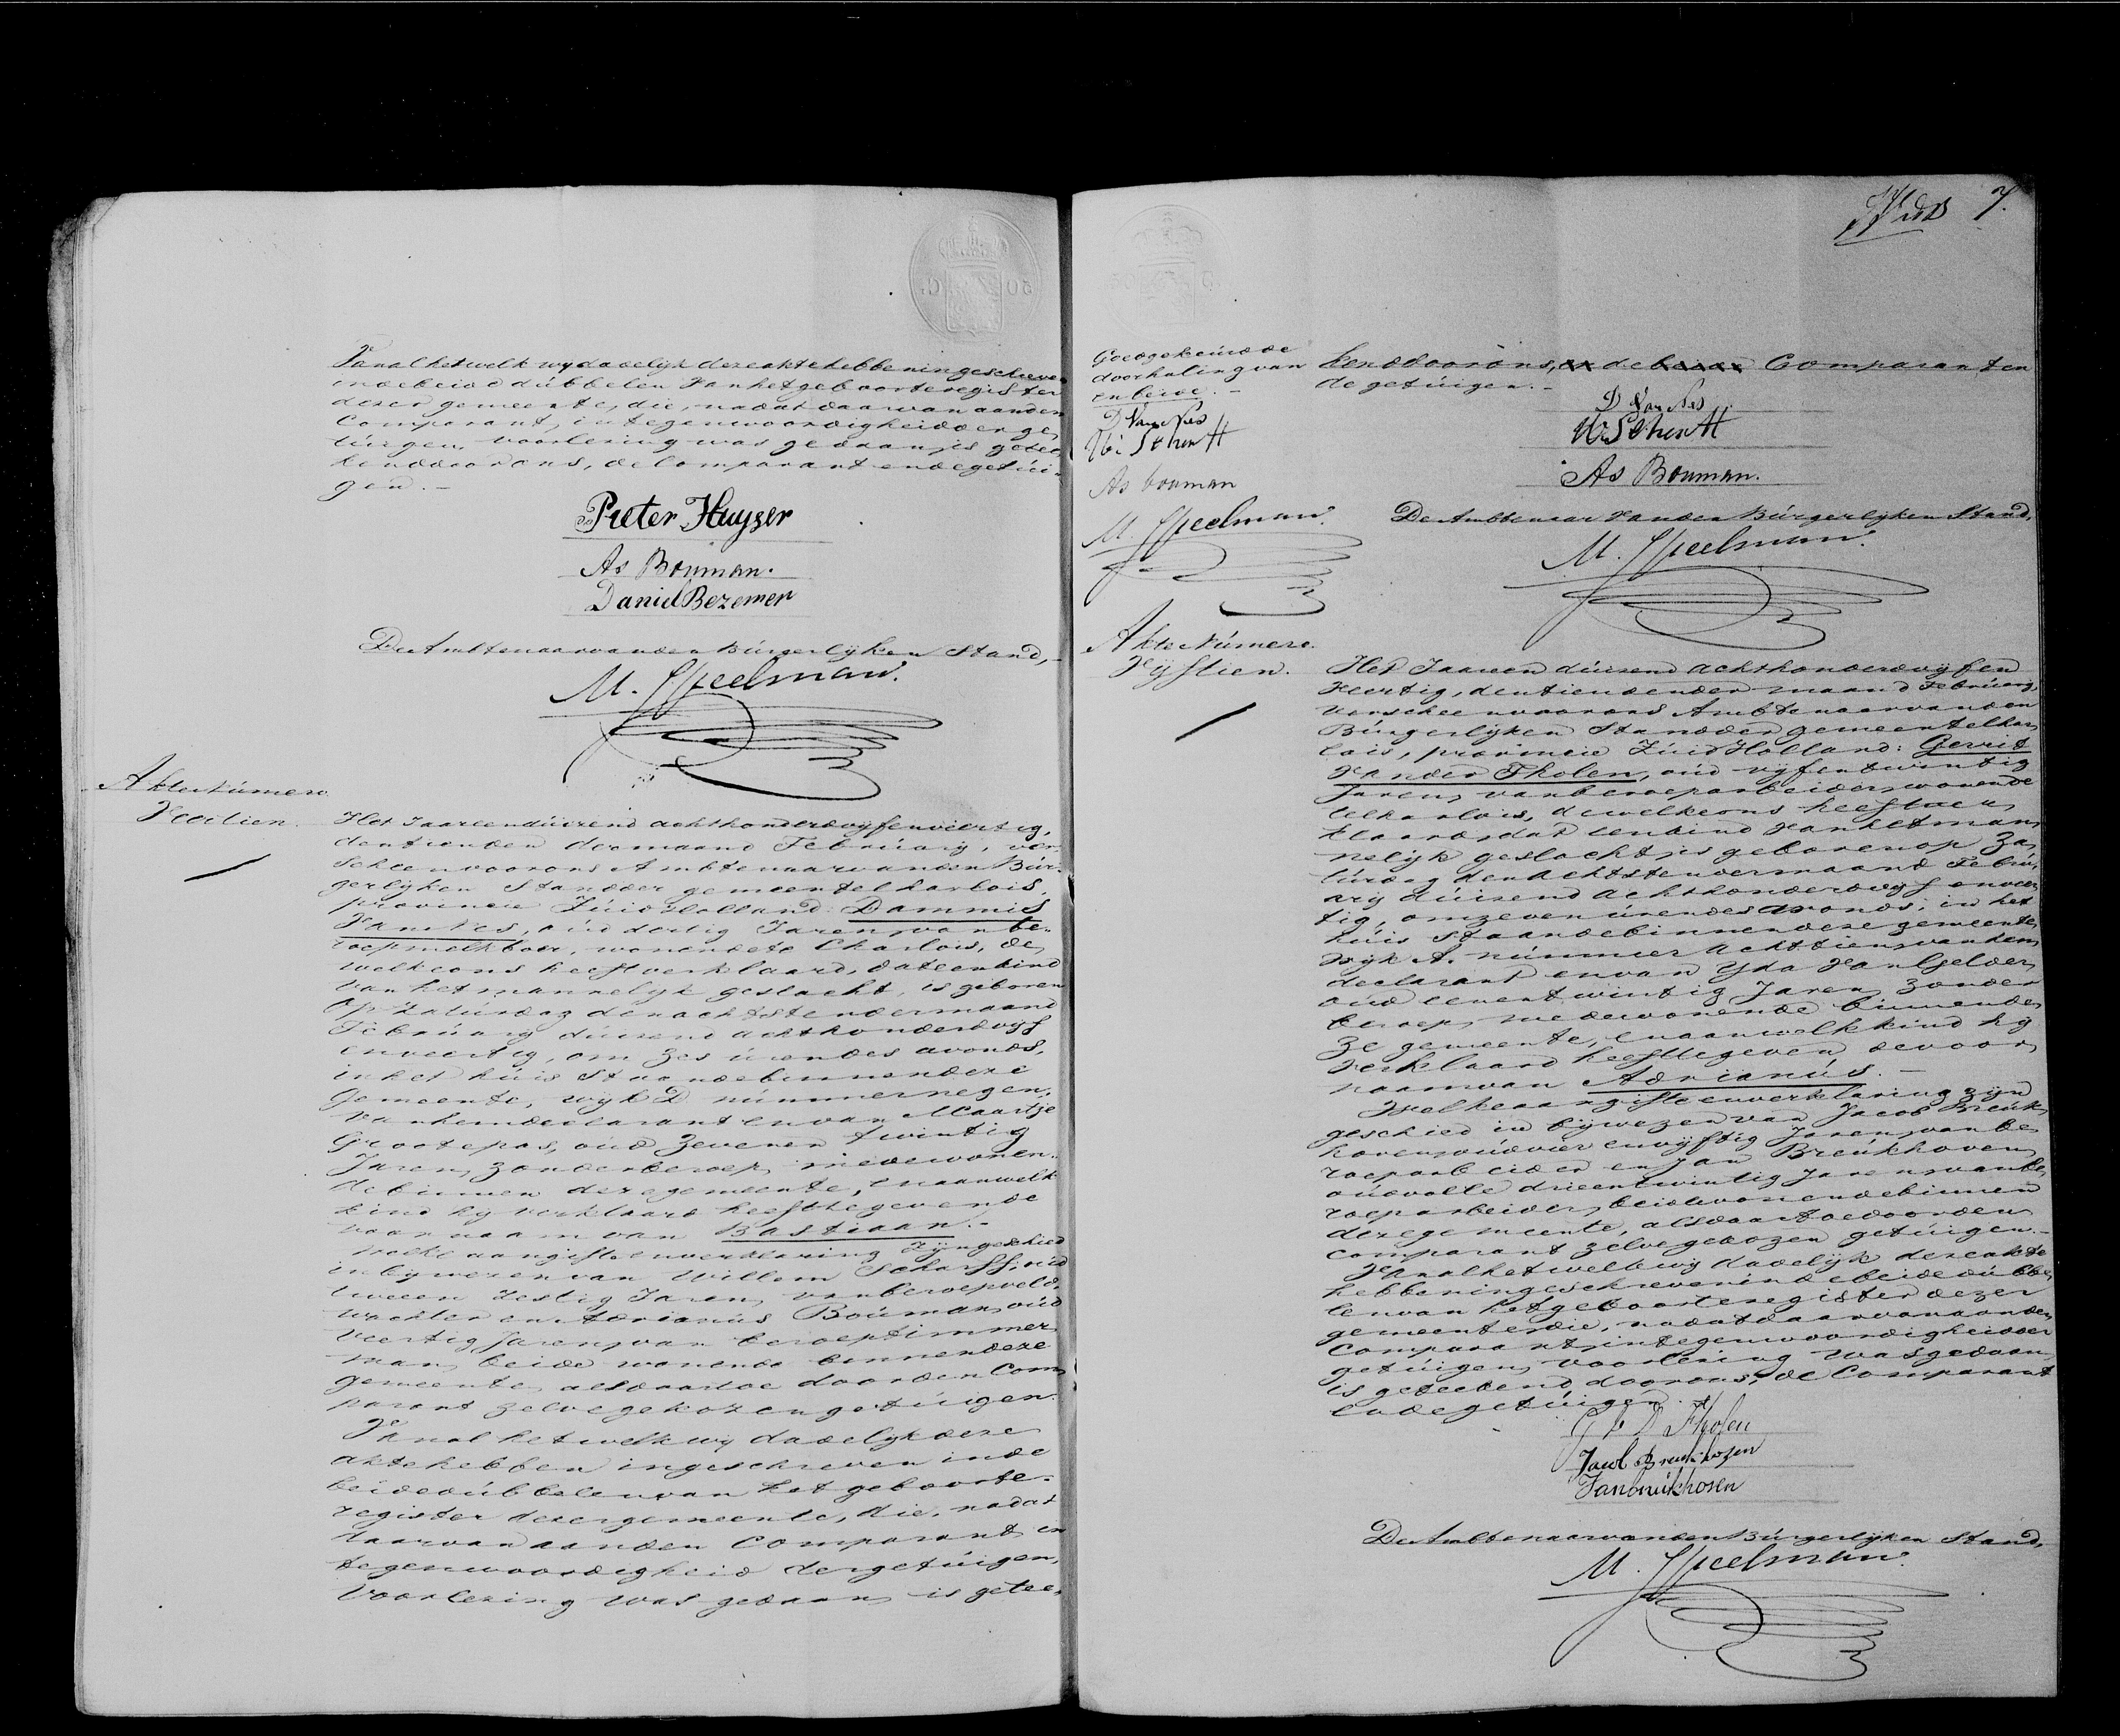 Van al het welk wy dadelijk deze akte hebben ingeschreven
in de beide dúbbelen van het geboorteregister
dezer gemeente, die, nadat daarvan aan den
Comparant, in tegenwoordigheid der ge-
túigen, voorlezing was gedaan, is getee-
kend door ons, de Comparant en de getúi-
gen.-
Pieter Huyser
As Bouman.
Daniel Bezemer
De Ambtenaar van den Búrgerlijken Stand,-
M. Speelman.
Akte Número
Veertien.
Het Jaar een dúizend achthonderd vyf en veertig,
den tienden der maand Februarij, ver-
scheen voor ons Ambtenaar van den Búr-
gerlijken Stand der gemeente Charlois,
provincie Zúid Holland: Dammis
van Nes, oúd dertig Jaren, van be-
roep melkboer, wonende te Charlois, de
welke ons heeft verklaard, dat een kind
van het mannelijk geslacht, is geboren
op Zatúrdag den achtsten der maand
Febrúarij dúizend achthonderd vyf
en veertig, om zes úren des avonds,
in het húis staande binnen deze
gemeente, wijk D númmer negen,
van hem declarant en van Maartje
Grootepas, oúd zeven en twintig
Jaren, zonder beroep, mede wonen-
de binnen deze gemeente, en aan welk
kind hij verklaard heeft te geven de
voornaam van Bastiaan.-
Welke aangifte en verklaring zijn geschied
in bijwezen van Willem Scharff, oúd
twee en zestig Jaren, van beroep veld-
wachter en Adrianús Boúman, oúd
veertig Jaren, van beroep timmer-
man, beide wonende binnen deze
gemeente, als daartoe door den Com-
parant zelve gekozen getúigen.
Van al het welk wij dadelijk deze
akte hebben ingeschreven in de
beide dúbbelen van het geboorte-
register dezer gemeente, die, nadat
daarvan aan den Comparant, in
tegenwoordigheid der getúigen,
voorlezing was gedaan, is getee-
7.
Goedgekeúrd de
doorhaling van
en beide.-
D Van Nes
As bouman
M. Speelman.
kend door ons, en de beiden Comparant en
de getúigen.-
D Van Nes
As Bouman.
De Ambtenaar van den Búrgerlijken Stand,
M. Speelman.
Akte Número.
Vijftien.
Het Jaar een dúizend achthonderd vijf en
veertig, den tienden der maand Februarij,
verscheen voor ons Ambtenaar van den
Búrgerlijken Stand der gemeente Char-
lois, provincie Zúid Holland: Gerrit
van der Tholen, oúd vijf en twintig
Jaren, van beroep arbeider, wonende
te Charlois, de welke ons heeft ver-
klaard, dat een kind van het man-
nelijk geslacht, is geboren op Za-
túrdag den achtsten der maand Febrú-
arij dúizend achthonderd vijf en veer-
tig, om zeven úren des avonds, in het
húis staande binnen deze gemeente,
wijk A. númmer achttien, van hem
declarant en van Yda van Gelder,
oúd een en twintig Jaren, zonder
beroep, mede wonende binnen de-
ze gemeente, en aan welk kind hij
verklaard heeft te geven de voor-
naam van Adrianús.-
Welke aangifte en verklaring zijn
geschied in bijwezen van Jacob Breúk-
hoven, oúd vier en vijftig Jaren, van be-
roep arbeider en Jan Breúkhoven,
oúd volle drie en twintig Jaren, van be-
roep arbeider, beide wonende binnen
deze gemeente, als daartoe door den
Comparant zelve gekozen getúigen.-
Van al het welk wij dadelijk deze akte
hebben ingeschreven in de beide dúbbe-
len van het geboorteregister dezer
gemeente, die, nadat daarvan aan den
Comparant, in tegenwoordigheid der
getúigen, voorlezing was gedaan,
is geteekend door ons, de Comparant
en de getúigen.
G v D Tholen
Jacob Breukhoven
Jan breúkhoven
De Ambtenaar van den Búrgerlijken Stand,
M. Speelman.